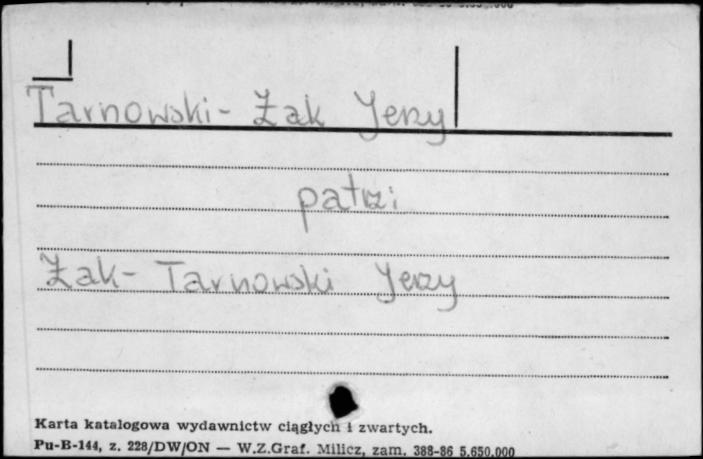 Tarnowski-Żak Jerzy
patrz:
Żak-Tarnowski Jerzy
Karta katalogowa wydawnictw ciągłych i zwartych.
Pu-B-144, z. 228/DW/ON — W.Z.Graf. Milicz, zam. 388-86 5.650.000